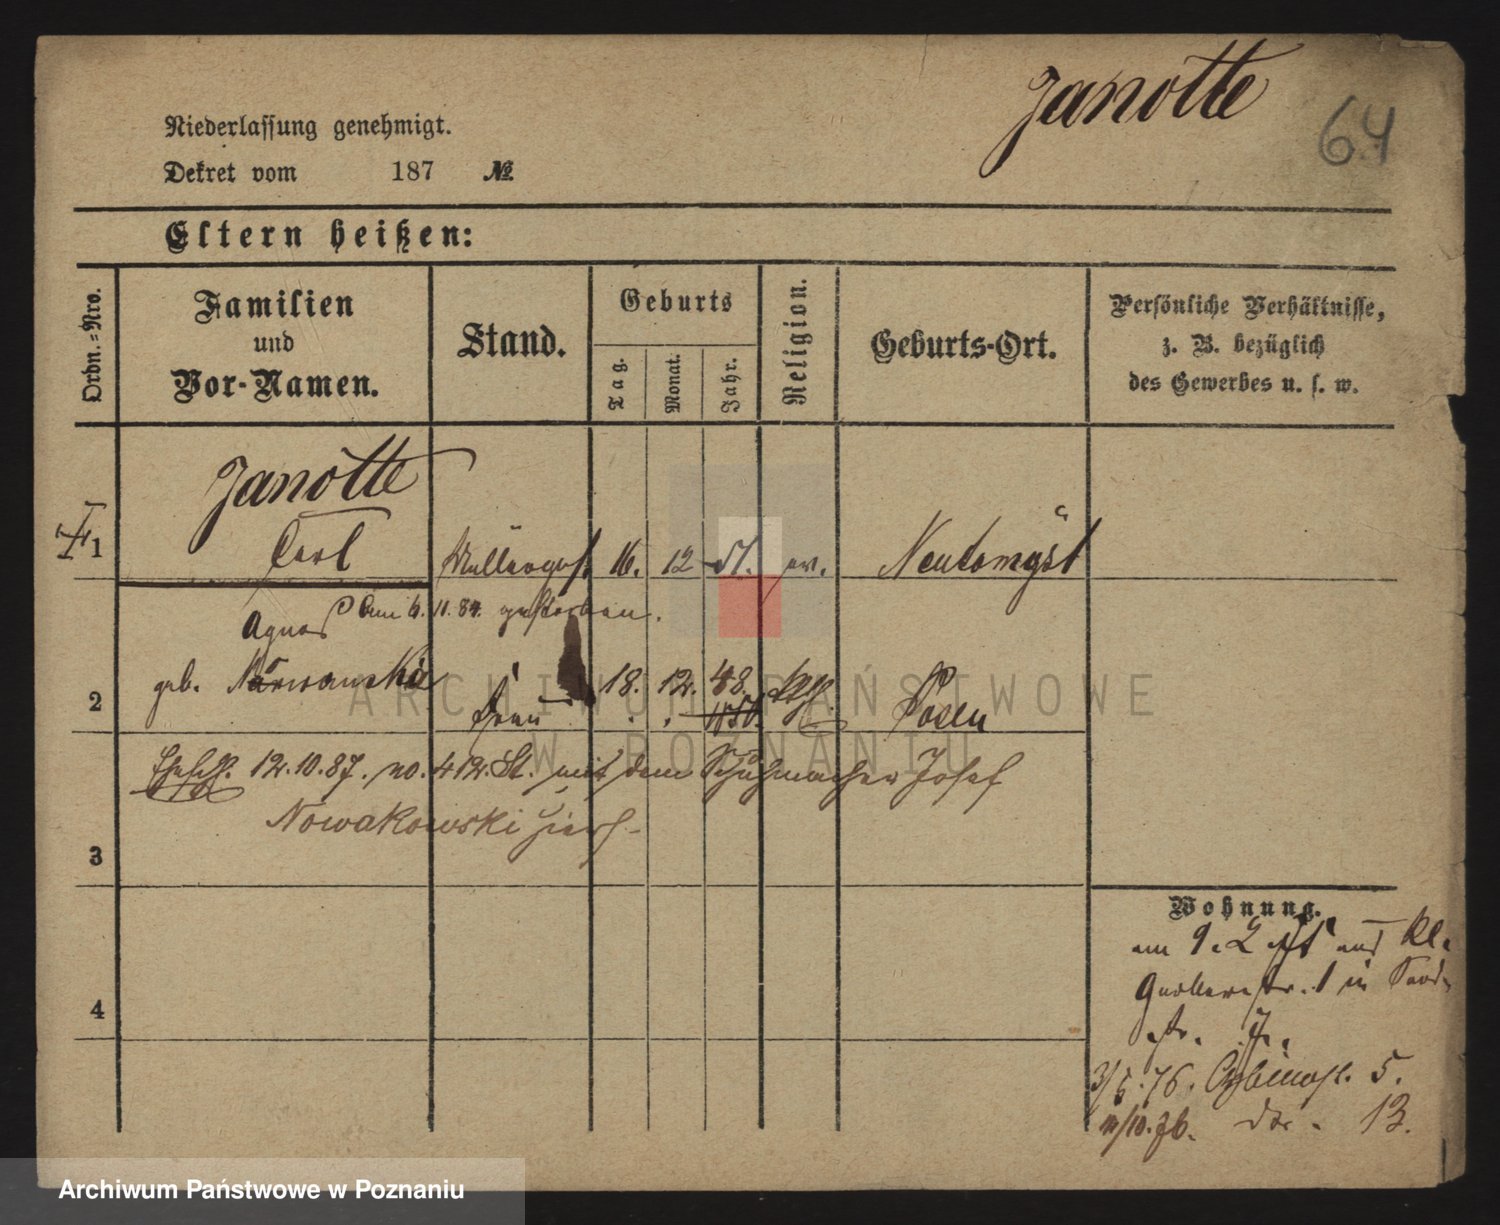 Janotte
64
Niederlassung genehmigt.
Dekret vom 187 №
Eltern heißen:
Ordn.=Nro.
Familien
und
Vor-Namen.
Stand.
Geburts
Tag.
Monat.
Jahr.
Religion.
Geburts-Ort.
Persönliche Verhältnisse,
z. B. bezüglich
des Gewerbes u. s. w.
Janotte
1 Carl Müllerges. 16. 12 51. ev. Neutomysl
am 6. 11. 84. gestorben.
Agnes
2 geb. 18. 12. 48. Posen
Frau
12. 10. 87. no. 412. St. mit dem Schuhmacher Josef
Nowakowski hier
3
4
Wohnung.
am 9. 2 aus Kl.
Gerberstr. 1 in
str. 7.
3/5. 76. 5.
11/10. 76. do. 13.
ARCHIWUM PAŃSTWOWE
W POZNANIU
Archiwum Państwowe w Poznaniu